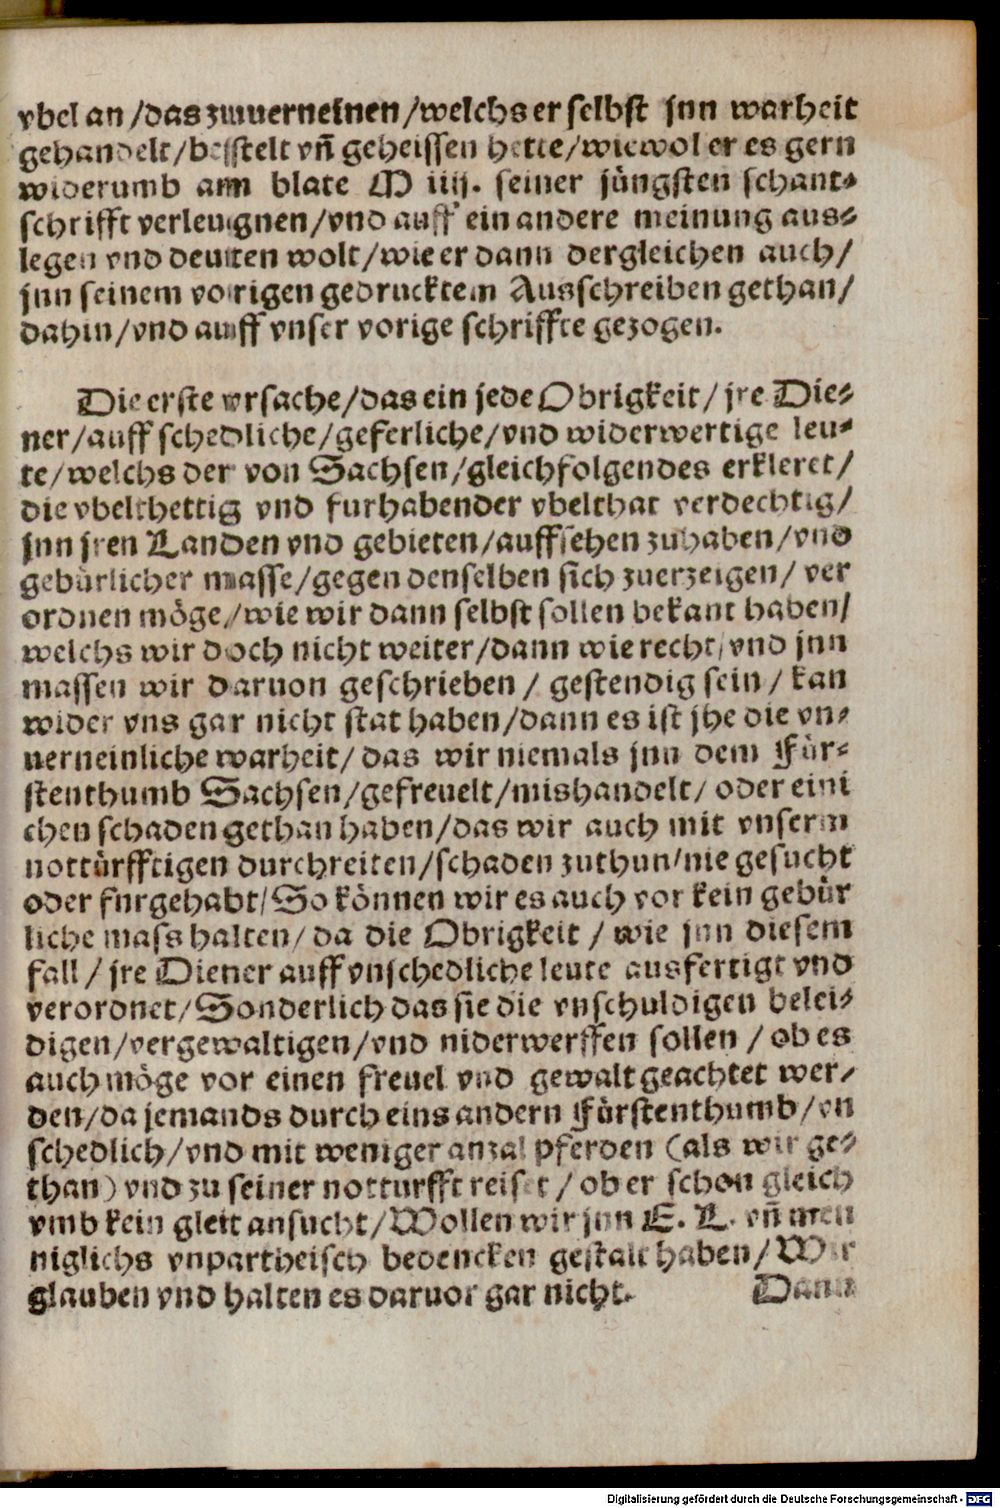 vbel an /das zuuerneinen /welchs er selbst jnn warheit
gehandelt/bestelt vñ geheissen hette/wiewol er es gern
widerumb am blate M iiij. seiner jüngsten schant⸗
schrifft verleugnen/vnd auff ein andere meinung aus⸗
legen vnd deuten wolt/wie er dann dergleichen auch/
jnn seinem vorigen gedrucktem Ausschreiben gethan/
dahin/vnd auff vnser vorige schriffte gezogen.
Die erste vrsache/das ein jede Obrigkeit/ jre Die⸗
ner/auff schedliche/geferliche/vnd widerwertige leu⸗
te/welchs der von Sachsen/gleichfolgendes erkleret/
die vbelthettig vnd furhabender vbelthat verdechtig/
jnn jren Landen vnd gebieten/auffsehen zuhaben/vnd
gebürlicher masse/gegen denselben sich zuerzeigen/ ver
ordnen möge/wie wir dann selbst sollen bekant haben/
welchs wir doch nicht weiter/dann wie recht/vnd jnn
massen wir daruon geschrieben / gestendig sein / kan
wider vns gar nicht stat haben/dann es ist jhe die vn⸗
uerneinliche warheit/ das wir niemals jnn dem Für⸗
stenthumb Sachsen/gefreuelt/mishandelt/ oder eini
chen schaden gethan haben/das wir auch mit vnserm
nottürfftigen durchreiten/schaden zuthun/nie gesucht
oder furgehabt/So können wir es auch vor kein gebür
liche mass halten/ da die Obrigkeit / wie jnn diesem
fall / jre Diener auff vnschedliche leute ausfertigt vnd
verordnet/Sonderlich das sie die vnschuldigen belei⸗
digen/vergewaltigen/vnd niderwerffen sollen / ob es
auch möge vor einen freuel vnd gewalt geachtet wer⸗
den/da jemands durch eins andern Fürstenthumb/vn
schedlich/vnd mit weniger anzal pferden (als wir ge⸗
than) vnd zu seiner notturfft reiset / ob er schon gleich
vmb kein gleit ansucht/Wollen wir jnn E. L. vñ men
niglichs vnpartheisch bedencken gestalt haben/Wir
glauben vnd halten es daruor gar nicht. Dann
Digitalisierung gefördert durch die Deutsche Forschungsgemeinschaft - DFG